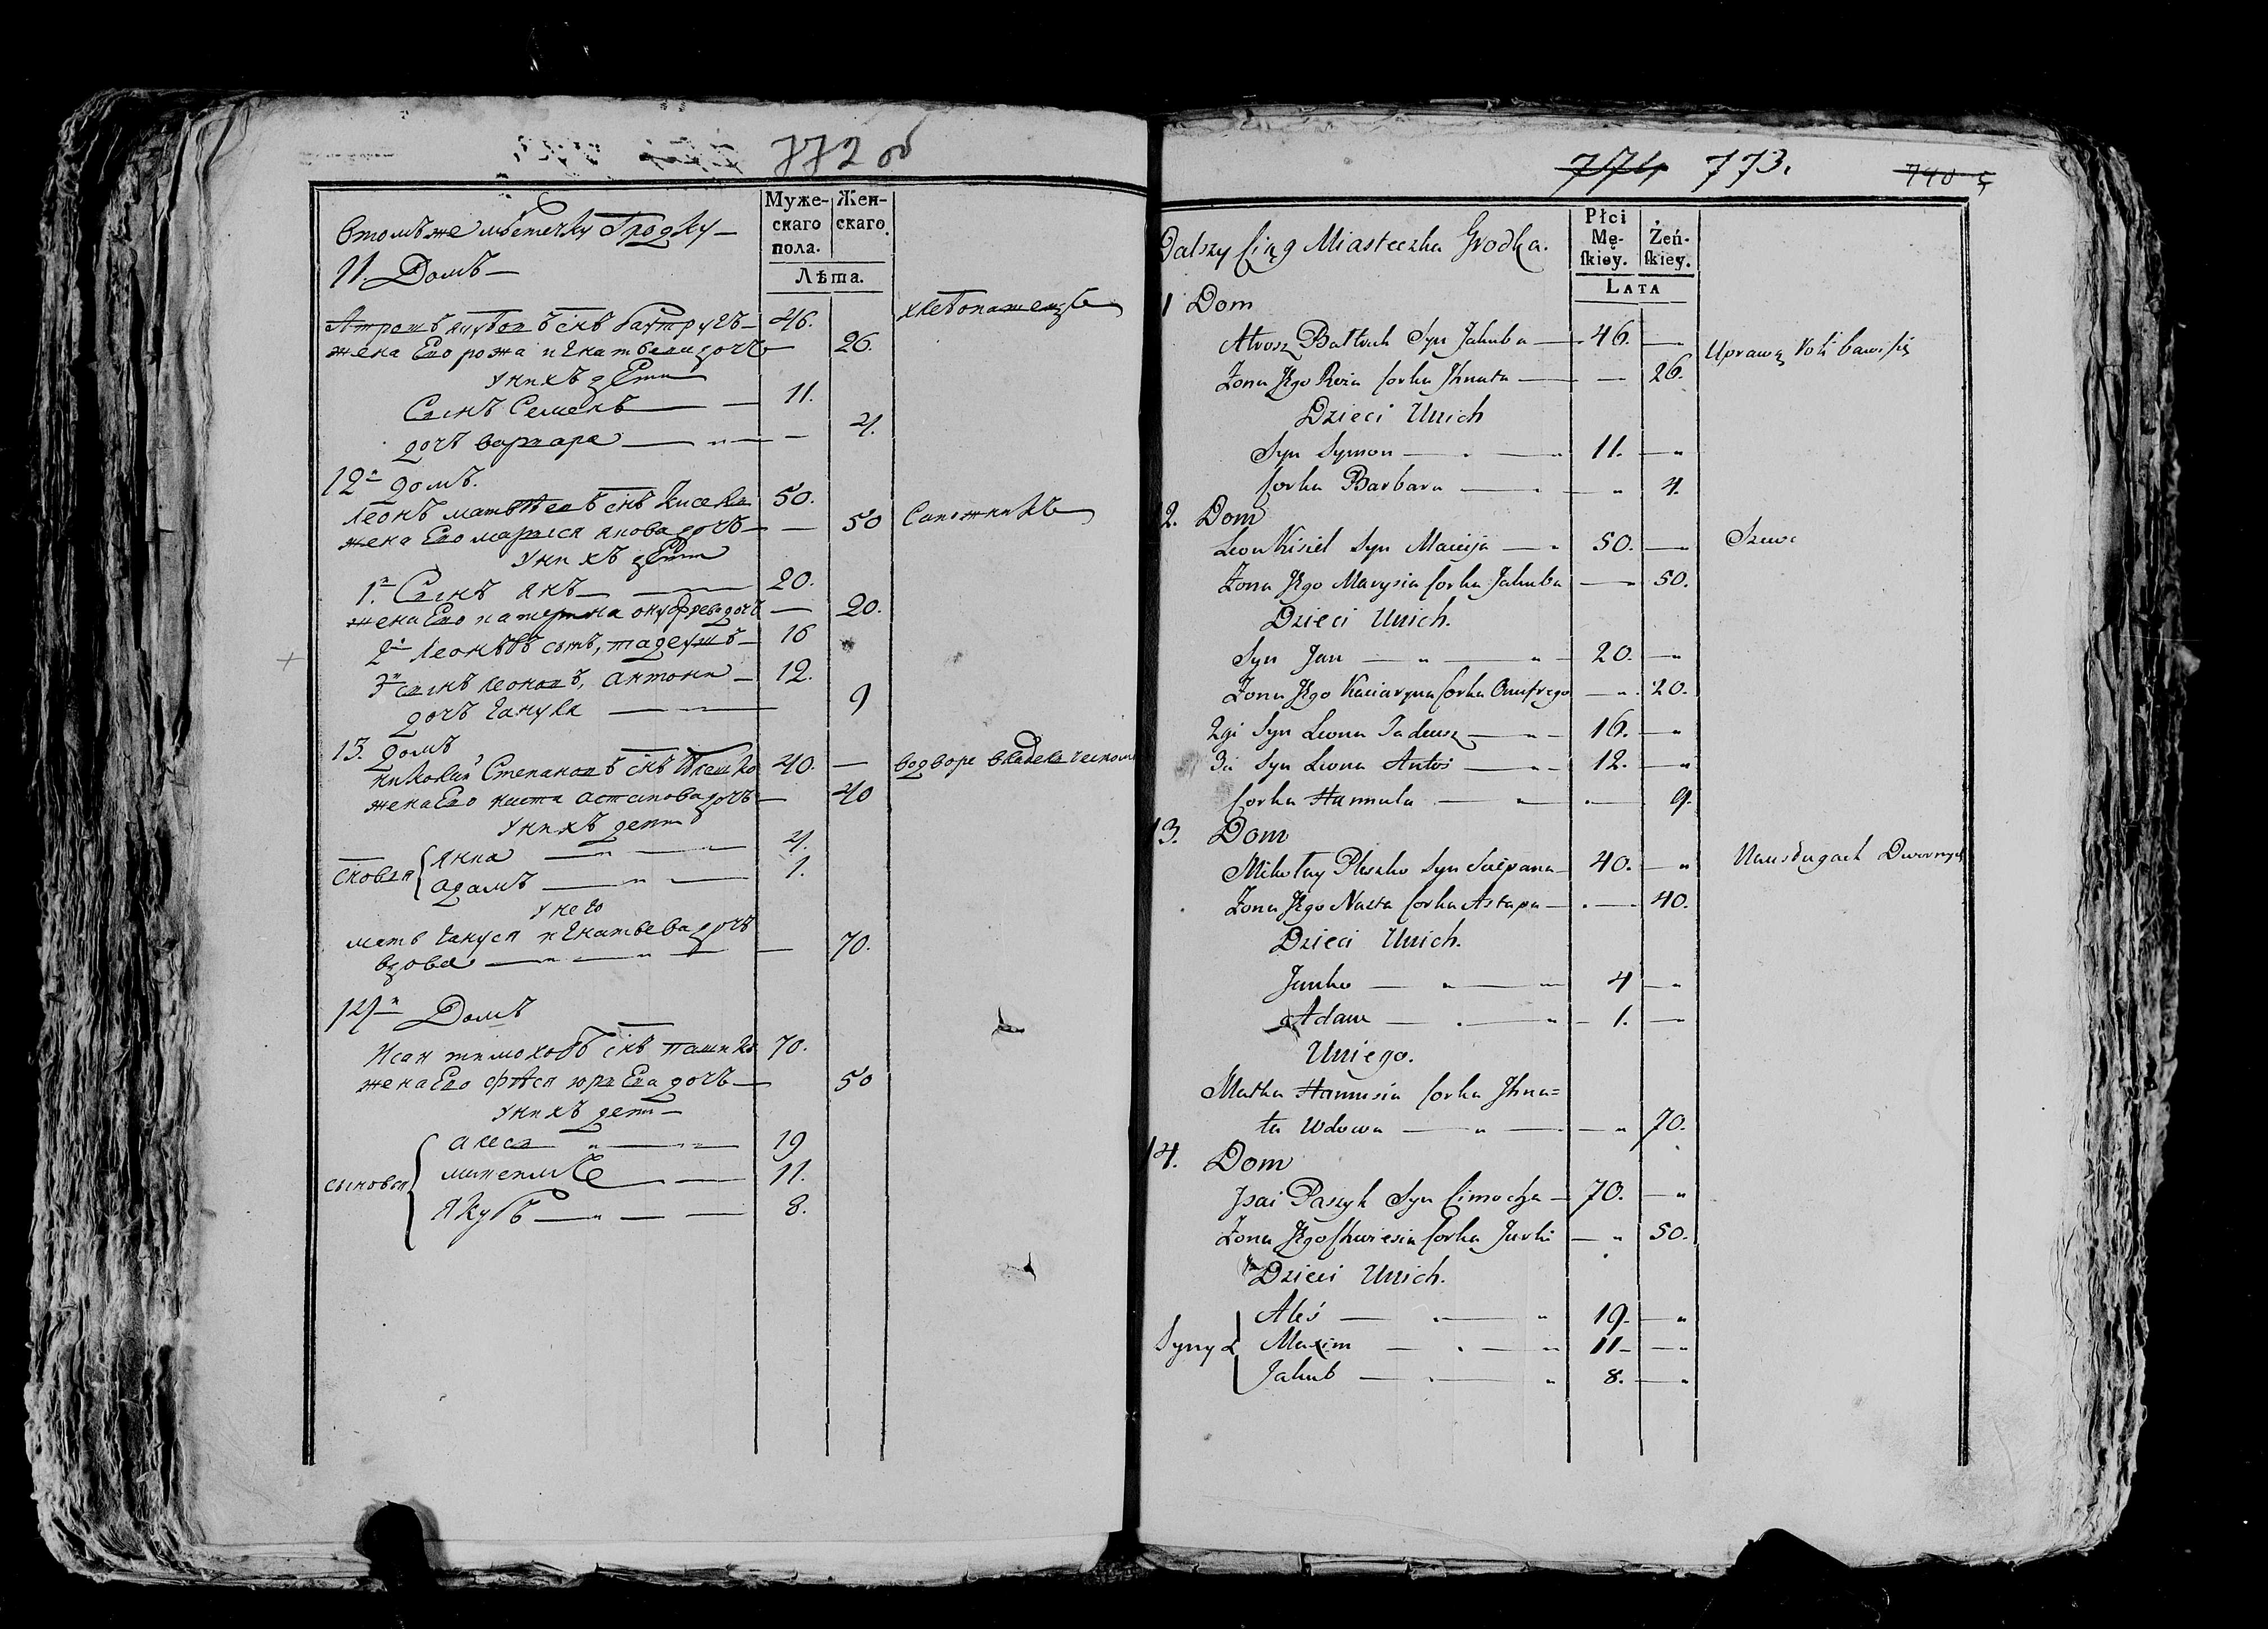 772 об
Муже-
скаго
пола.
Жен-
скаго.
Лѣта.
втомъже мѣстечку Гродку —
11. Домъ —
46.
хлебопашецъ
жена Его рожа игнатьева дочь — 26.
унихъ дети
Сынъ Семенъ — 11.
дочь варвара — 4.
12й домъ.
леонъ матвеевъ снъ кисель 50. Сапожникъ
жена Его марися якова дочь — 50
унихъ дети
1й Сынъ янъ — 20.
жена Его катерина онуфрева дочь — 20.
2й леоновъ сынъ, тадеушъ — 16
3й сынъ леоновъ, антони — 12.
дочь ганула — 9
13. домъ
николай Степановъ снъ плешко 40. — водворе
жена Его наста астапова дочь — 40
унихъ дети
сновья { янка — 4.
адамъ — 1.
унего
мать гануся игнатьева дочь
вдова — 70.
14й Домъ
Исаи тимоховъ снъ пашико 70.
жена Его фвеся юрьева дочь — 50
унихъ дети —
сыновья { алесь — 19
11.
якубъ — 8.
774 773. 740 5
Płci
Mę-
ſkiey.
Żeń-
ſkiey.
LATA
Dalszy Ciąg Miasteczka Grodka.
11 Dom
Atrosz Bałtruk Syn Jakuba — 46. — Uprawą Roli bawi się
Żona Jego Roża Corka Ihnata — 26.
Dzieci Unich
Syn Symon — 11. —
Corka Barbara — 4.
12. Dom
Leon Kisiel Syn Macieja — 50. — Szewc
Żona Jego Marysia Corka Jakuba — 50.
Dzieci Unich.
Syn Jan — 20. —
Żona Jego Kaciaryna Corka Onufrego — 20.
2gi Syn Leona Tadeusz — 16. —
3ci Syn Leona Antoś — 12. —
Corka Hannula — 9.
13. Dom
Mikołay Pleszko Syn Sciepana — 40. — Nausługach Dwornych
Żona Jego Nasta Corka Astapa — 40.
Dzieci Unich.
Janko — 4 —
Adam — 1. —
Uniego.
Matka Hannusia Corka Ihna=
ta Wdowa — 70.
14. Dom
Isai Paszyk Syn Cimocha — 70. —
Żona Jego Chwiesia Corka Jurki — 50.
Dzieci Unich.
Aleś — 19. —
Syny { Maxim — 11 —
Jakub — 8. —